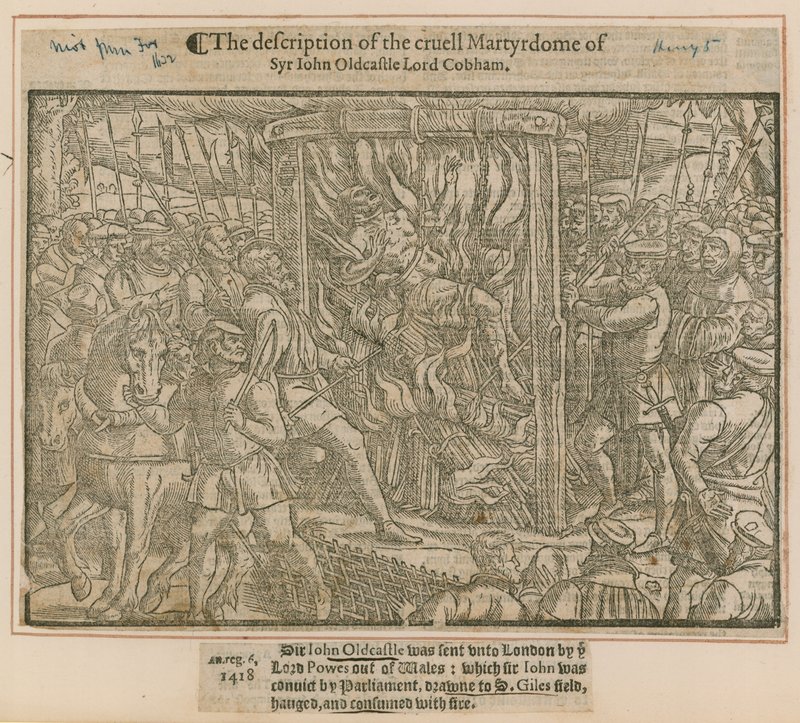 ¶The deſcription of the cruell Martyrdome of
Syr Iohn Oldcaſtle Lord Cobham.
Henry 5
1632
AN.reg. 6,
1418
Sir Iohn Oldcaſtle was ſent vnto London by yͤ
Lord Powes out of Wales : which ſir Iohn was
conuict by Parliament, drawne to S. Giles field,
hanged, and conſumed with fire.